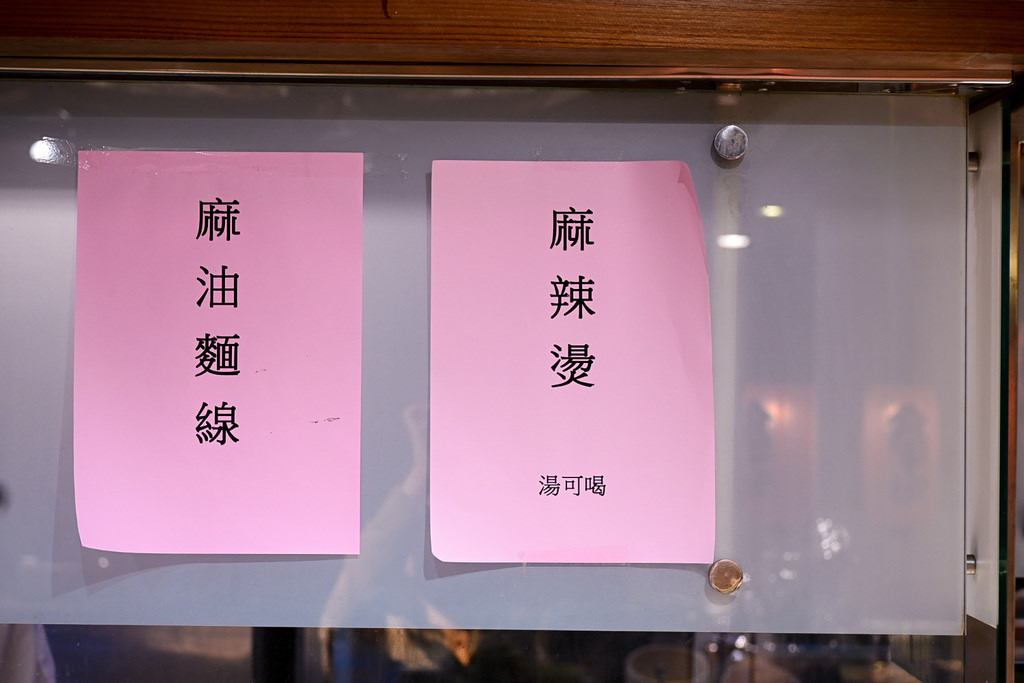 麻油麵線
麻辣燙
湯可喝